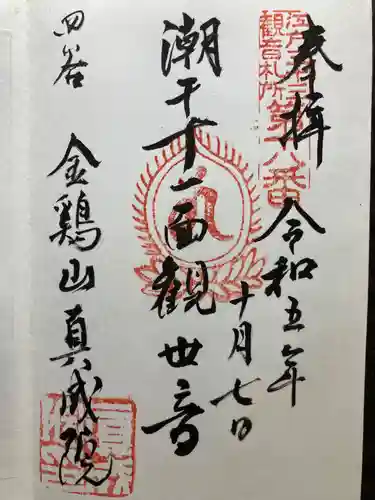 奉拝
令和五年
十月七日
江戸三十三
観音札所
第十八番
潮干十一面観世音
四谷
金鶏山真成院